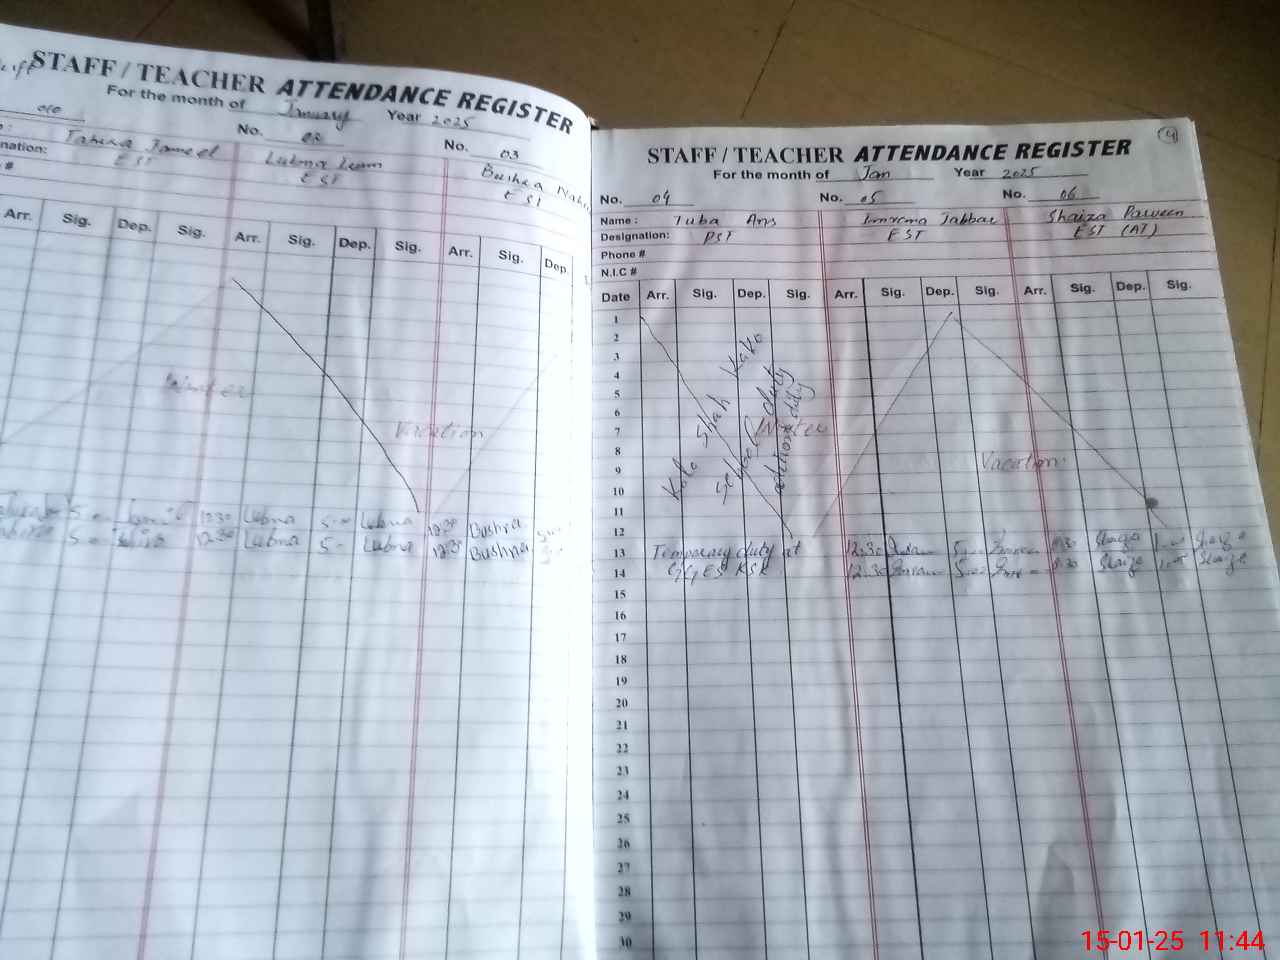 STAFF / TEACHER ATTENDANCE REGISTER
For the month of January Year 2025
No. 02 No. 03
nation: Tahira Jameel Lubna Bushra
EST EST EST
#
Arr. Sig. Dep. Sig. Arr. Sig. Dep. Sig. Arr. Sig. Dep.
Winter
Vacation
5 12.30 Lubna 5 Lubna 12.30 Bushra
5 12.30 Lubna 5 Lubna 12.30 Bushra
4
STAFF / TEACHER ATTENDANCE REGISTER
For the month of Jan Year 2025
No. 04 No. 05 No. 06
Name : Tuba Jabbar Shaiza Parveen
Designation: PST EST EST (AT)
Phone #
N.I.C #
Date Arr. Sig. Dep. Sig. Arr. Sig. Dep. Sig. Arr. Sig. Dep. Sig.
1
2
3
4
5
6
7
8
9
10
11
12
13
14
15
16
17
18
19
20
21
22
23
24
25
26
27
28
29
30
Kako Shah Kako
School duty
duty
Winter
Vacation
Temporary duty at 12.30 Shaiza Shaiza
GGES KSK 12.30 Shaiza Shaiza
15-01-25 11:44